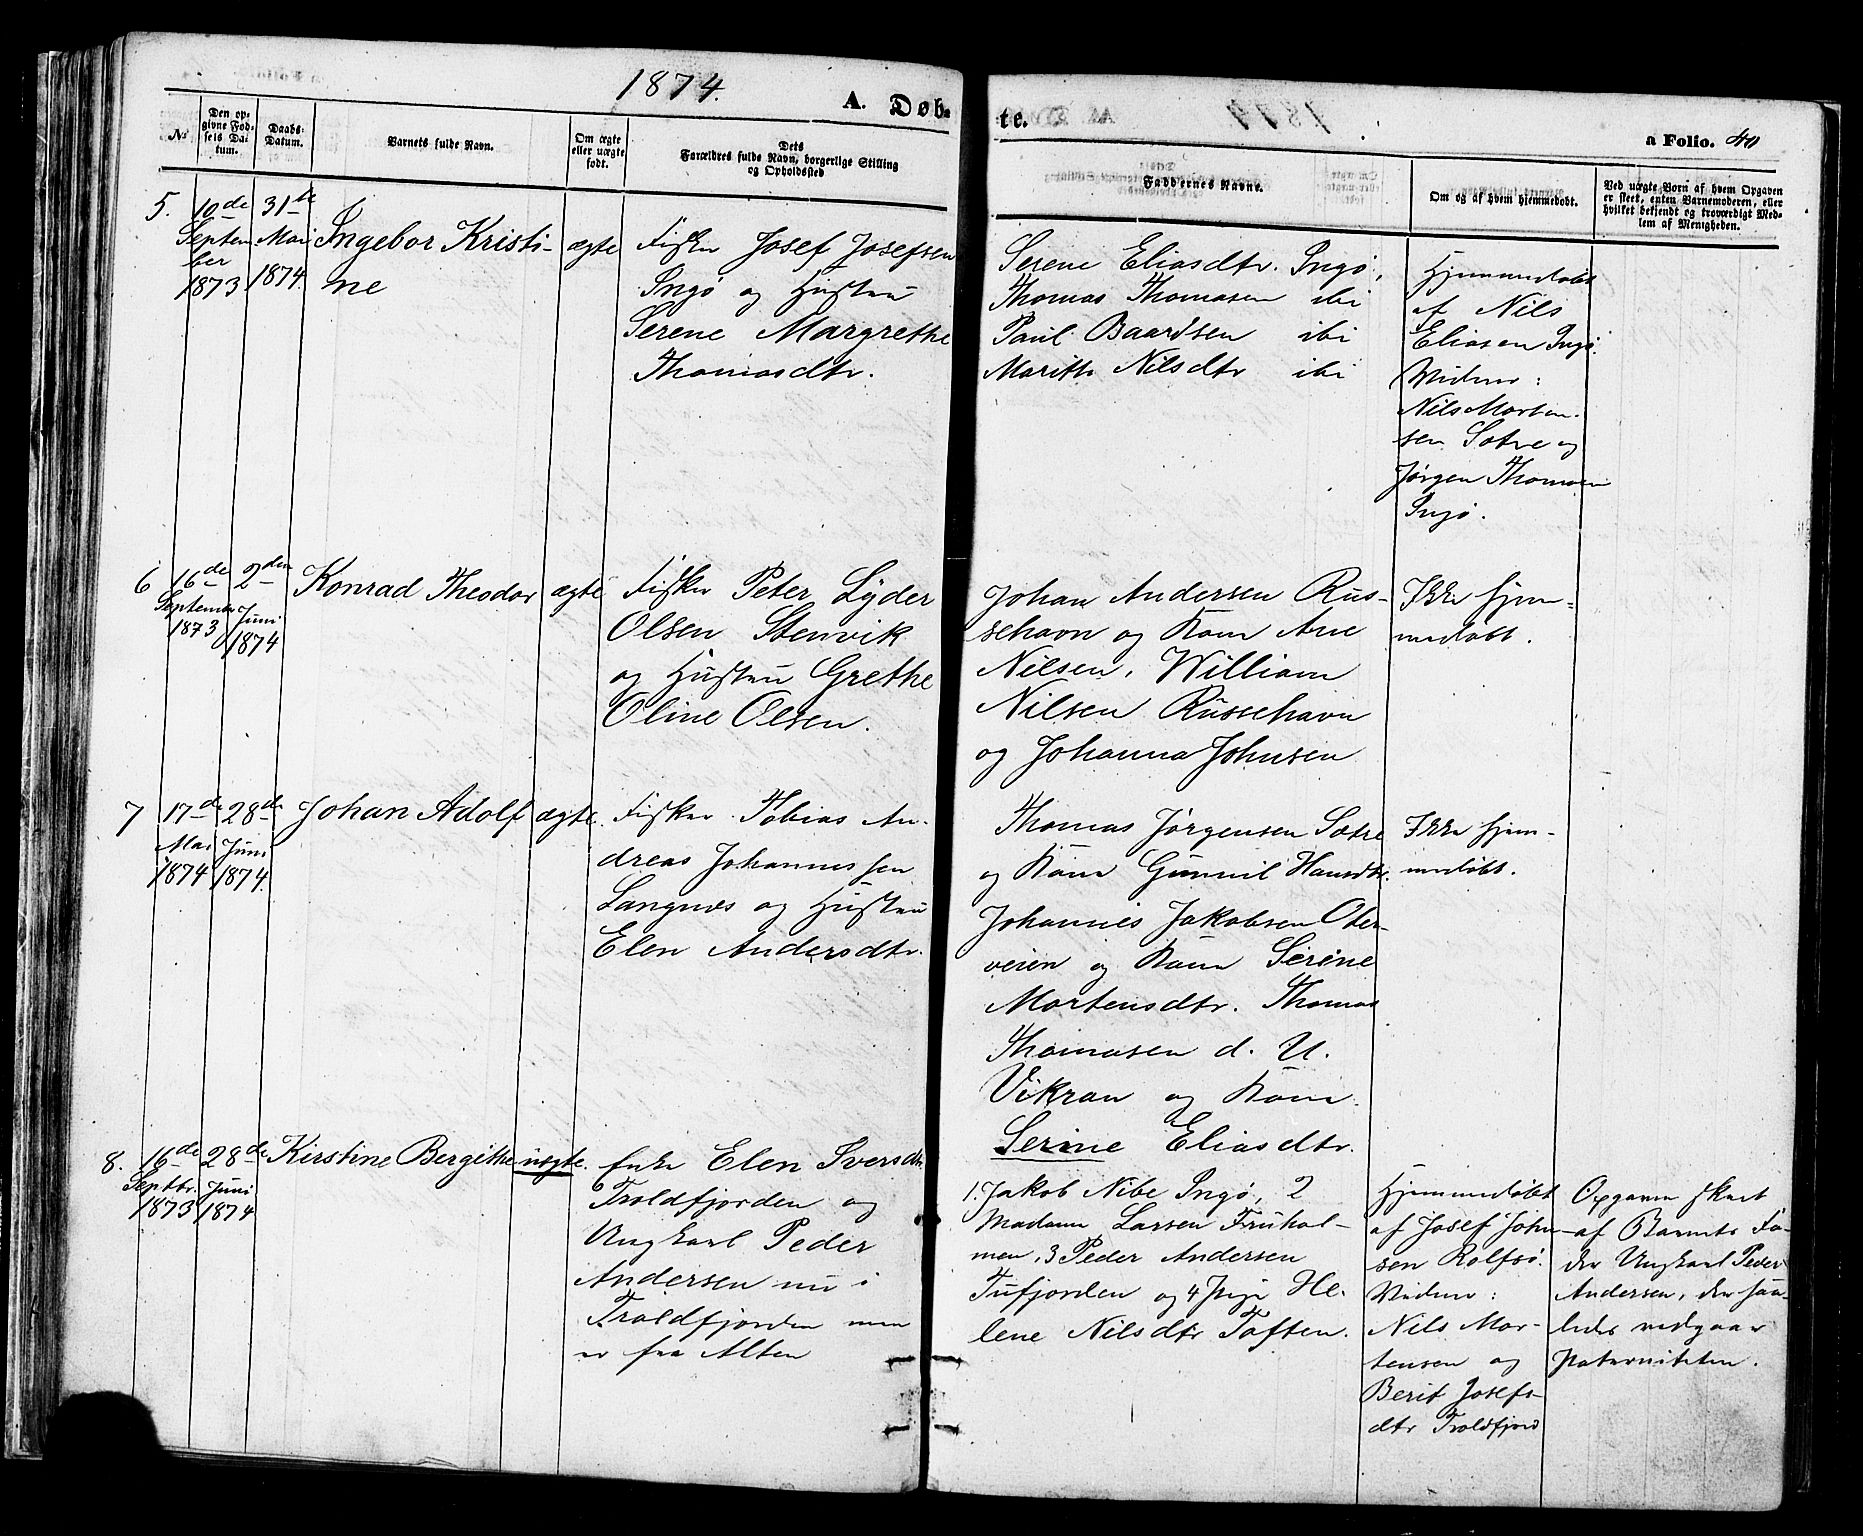 1874.
A. Døb-
te.
a Folio. 40
No
Den op-
givne Fød-
sels Da-
tum.
Daabs-
Datum.
Barnets fulde Navn.
Om ægte
eller uægte
født.
Dets
Forældres fulde Navn, borgerlige Stilling
og Opholdssted
Faddernes Navne.
Om og af hvem hjemmedøbt.
Ved uægte Børn af hvem Opgaven
er skeet, enten Barnemoderen, eller
hvilket bekjendt og troværdigt Med-
lem af Menigheden.
5.
10de
Septem
ber
1873
31te
Mai
1874
Ingebor Kristi-
ne
ægte
Fisker Josef Josefsen
Ingø og Hustru
Serene Margrethe
Thomasdtr.
Serene Eliasdtr. Ingø,
Thomas Thomasen ibi
Paul Baardsen ibi
Marith Nilsdtr ibi
Hjemmedøbt
af Nils
Eliasen Ingø.
Vidner:
Nils Morten-
sen Sætre og
Jørgen Thomasen
Ingø.
6
16de
September
1873
2den
Juni
1874
Konrad Theodor
ægte
Fisker Peter Lyder
Olsen Stenvik
og Hustru Grethe
Oline Olsen.
Johan Andersen Rus-
sehavn og Kone Ane
Nilsen, William
Nilsen Russehavn
og Johanna Johnsen
Ikke hjem-
medøbt.
7
17de
Mai
1874
28de
Juni
1874
Johan Adolf
ægte.
Fisker Tobias An-
dreas Johannessen
Langnes og Hustru
Elen Andersdtr.
Thomas Jørgensen Sætre
og Kone Gunnil Hansdtr.
Johannes Jakobsen Oter-
veien og Kone Serine
Mortensdtr. Thomas
Thomasen d. U.
Vikran og Kone
Serine Eliasdtr.
Ikke hjem-
medøbt.
8.
16de
Septbr.
1873
28de
Juni
1874
Kirstine Bergithe
uægte.
Enke Elen Iversdtr
Troldfjorden og
Ungkarl Peder
Andersen nu i
Troldfjorden men
er fra Alten
1. Jakob Nibe Ingø, 2
Madame Larsen Fruhol-
men, 3 Peder Andersen
Tufjorden og 4 Pige He-
lene Nilsdtr Toften.
Hjemmedøbt
af Josef John-
sen Rolfsø.
Vidner:
Nils Mor-
tensen og
Berit Josefs-
dtr Troldfjord
Opgaven skeet
af Barnets Fa-
der Ungkarl Peder
Andersen, der saa-
ledes vedgaar
Paterniteten.